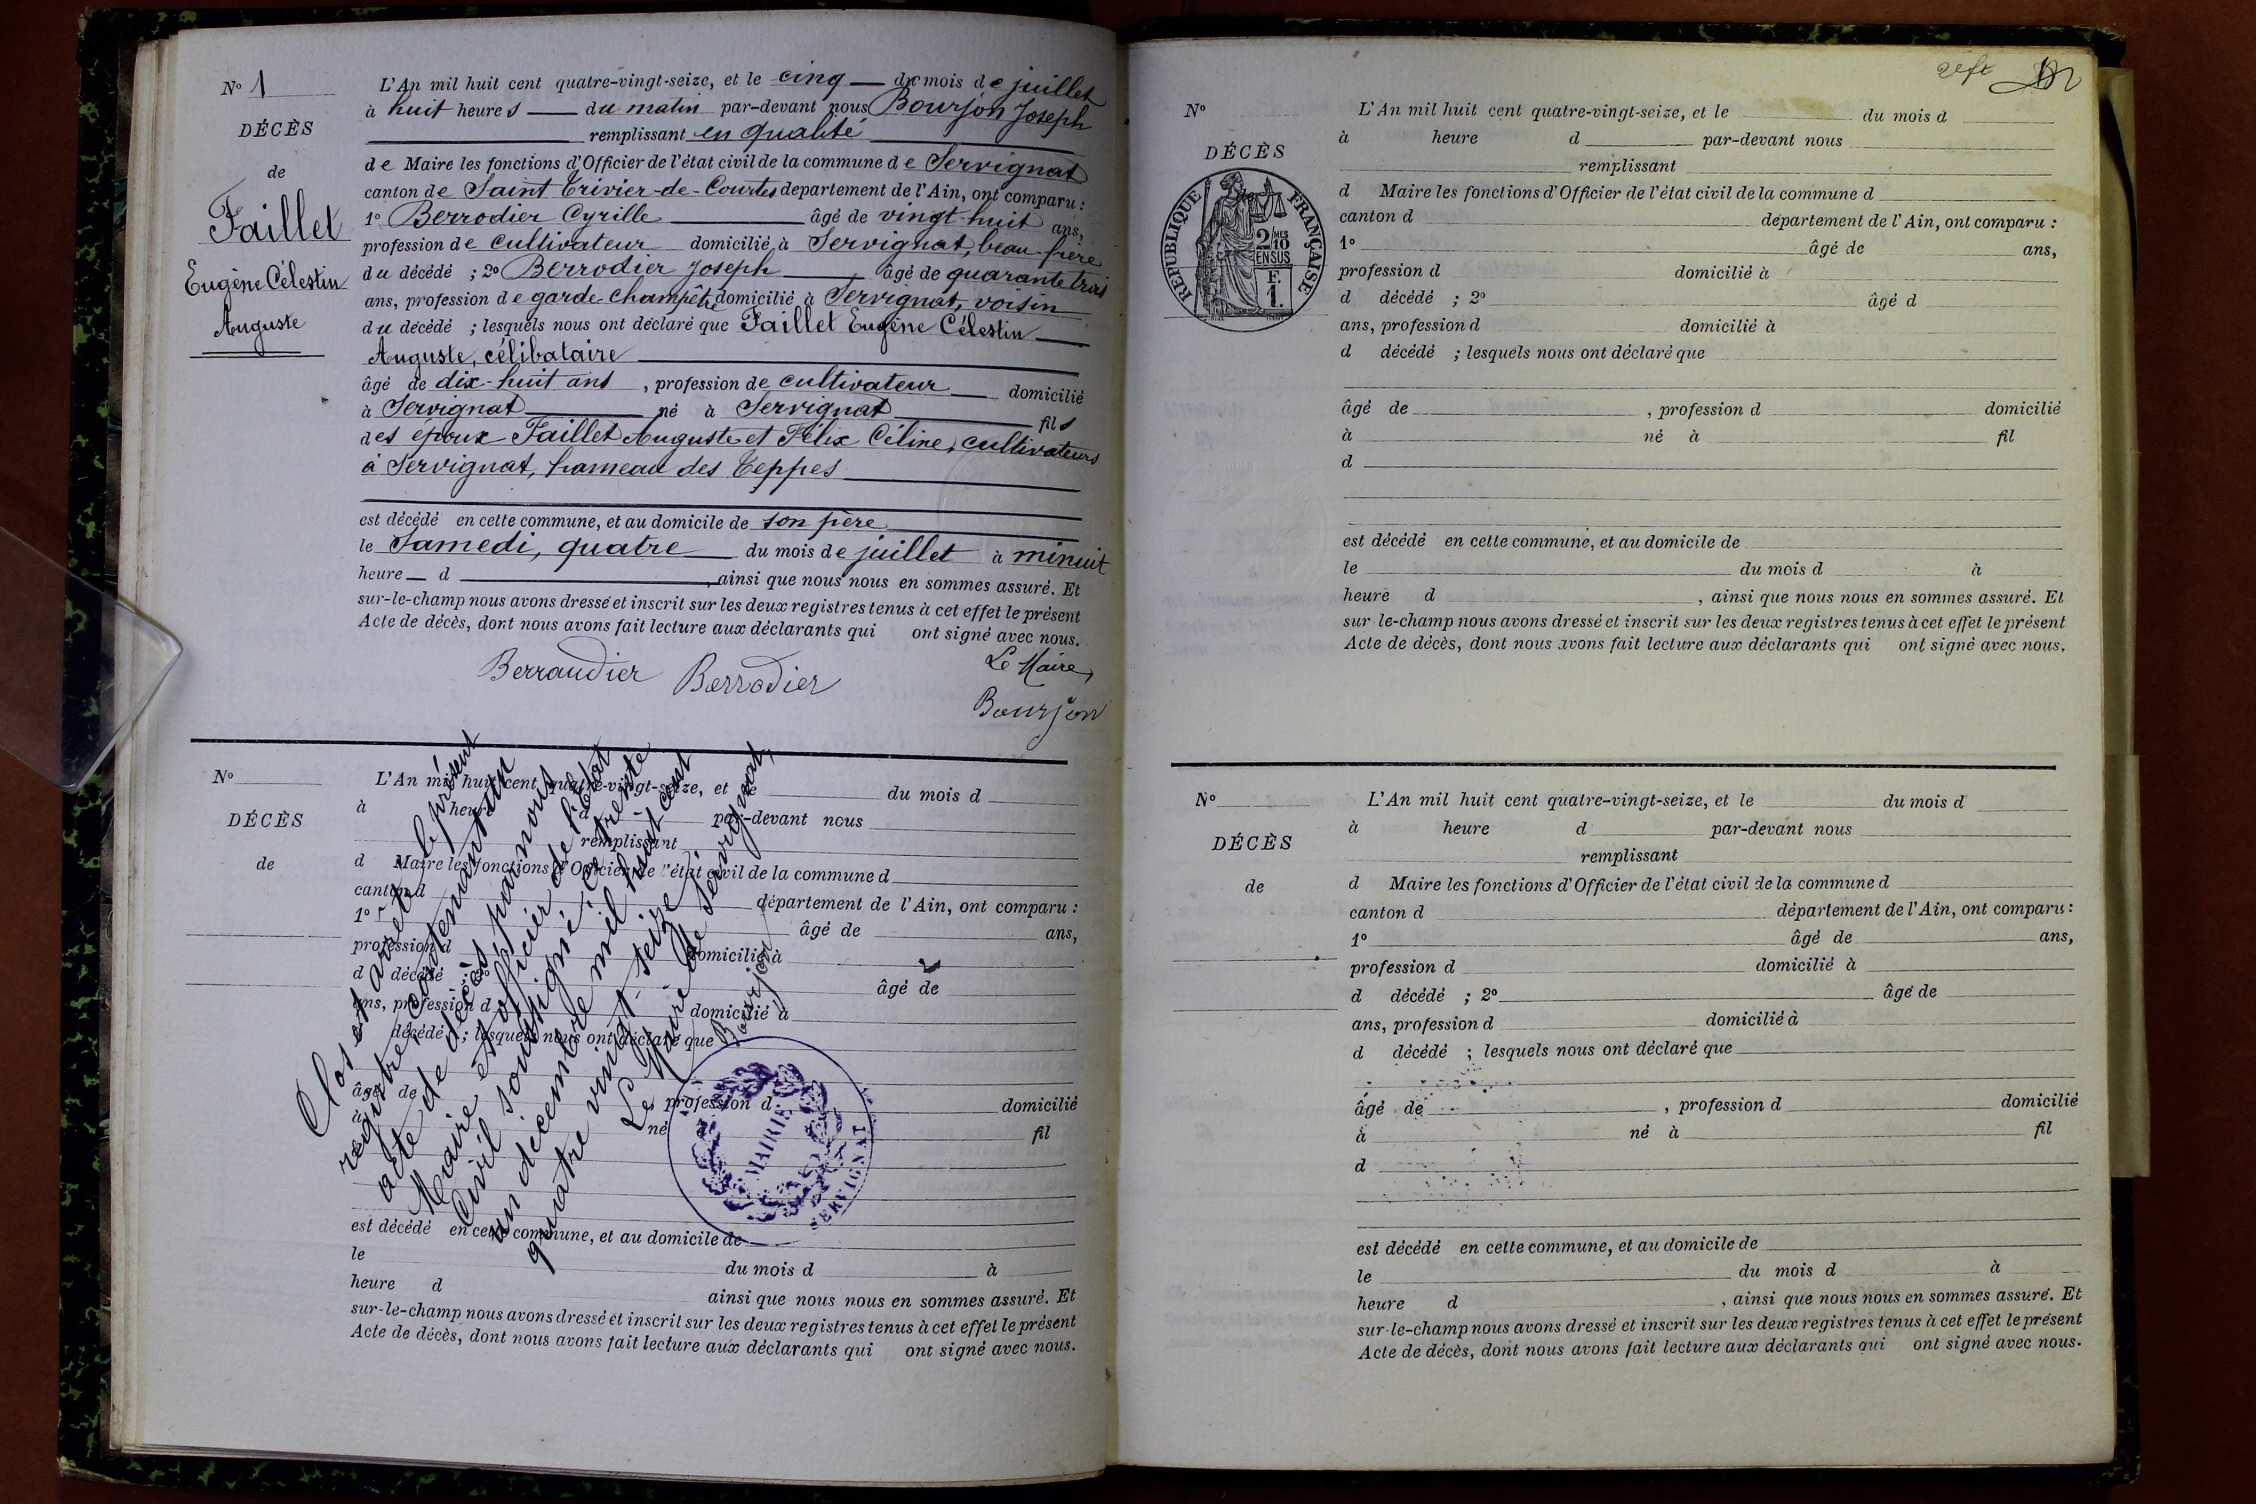 No 1
DÉCÈS
de
Faillet
Eugène Célestin
Auguste
L'An mil huit cent quatre-vingt-seize, et le cinq du mois de juillet
à huit heures du matin par-devant nous Bourjon Joseph
remplissant en qualité
de Maire les fonctions d'Officier de l'état civil de la commune de Servignat
canton de Saint Trivier-de-Courtes département de l'Ain, ont comparu :
1o Berrodier Cyrille âgé de vingt-huit ans,
profession de cultivateur domicilié à Servignat, beau-frère
du décédé ; 2o Berrodier Joseph âgé de quarante trois
ans, profession de garde-champêtre domicilié à Servignat, voisin
du décédé ; lesquels nous ont déclaré que Faillet Eugène Célestin
Auguste, célibataire
âgé de dix-huit ans, profession de cultivateur domicilié
à Servignat né à Servignat fils
des époux Faillet Auguste et Félix Céline, cultivateurs
à Servignat, hameau des Teppes
est décédé en cette commune, et au domicile de son père
le Samedi, quatre du mois de juillet à minuit
heure d , ainsi que nous nous en sommes assuré. Et
sur-le-champ nous avons dressé et inscrit sur les deux registres tenus à cet effet le présent
Acte de décès, dont nous avons fait lecture aux déclarants qui ont signé avec nous.
Berraudier Berrodier Le Maire,
Bourjon
No
DÉCÈS
de
L'An mil huit cent quatre-vingt-seize, et le du mois d
à heure d par-devant nous
remplissant
d Maire les fonctions d'Officier de l'état civil de la commune d
canton d département de l'Ain, ont comparu :
1o âgé de ans,
profession d domicilié à
d décédé ; 2o âgé de
ans, profession d domicilié à
d décédé ; lesquels nous ont déclaré que
âgé de , profession d domicilié
à né à fil
d
est décédé en cette commune, et au domicile de
le du mois d à
heure d ainsi que nous nous en sommes assuré. Et
sur-le-champ nous avons dressé et inscrit sur les deux registres tenus à cet effet le présent
Acte de décès, dont nous avons fait lecture aux déclarants qui ont signé avec nous.
Clos et arrêté le présent
registre, contenant un
acte de décès, par nous
Maire et officier de l'état
Civil soussigné, ce trente
un décembre mil huit cent
quatre vingt-seize
Le Maire de Servignat,
Bourjon
MAIRIE
SERVIGNAT
No
DÉCÈS
RÉPUBLIQUE FRANÇAISE
2/10 MES
EN SUS
F.
1.
L'An mil huit cent quatre-vingt-seize, et le du mois d
à heure d par-devant nous
remplissant
d Maire les fonctions d'Officier de l'état civil de la commune d
canton d département de l'Ain, ont comparu :
1o âgé de ans,
profession d domicilié à
d décédé ; 2o âgé d
ans, profession d domicilié à
d décédé ; lesquels nous ont déclaré que
âgé de , profession d domicilié
à né à fil
d
est décédé en cette commune, et au domicile de
le du mois d à
heure d , ainsi que nous nous en sommes assuré. Et
sur le-champ nous avons dressé et inscrit sur les deux registres tenus à cet effet le présent
Acte de décès, dont nous avons fait lecture aux déclarants qui ont signé avec nous.
No
DÉCÈS
de
L'An mil huit cent quatre-vingt-seize, et le du mois d
à heure d par-devant nous
remplissant
d Maire les fonctions d'Officier de l'état civil de la commune d
canton d département de l'Ain, ont comparu :
1o âgé de ans,
profession d domicilié à
d décédé ; 2o âgé de
ans, profession d domicilié à
d décédé ; lesquels nous ont déclaré que
âgé de , profession d domicilié
à né à fil
d
est décédé en cette commune, et au domicile de
le du mois d à
heure d , ainsi que nous nous en sommes assuré. Et
sur-le-champ nous avons dressé et inscrit sur les deux registres tenus à cet effet le présent
Acte de décès, dont nous avons fait lecture aux déclarants qui ont signé avec nous.